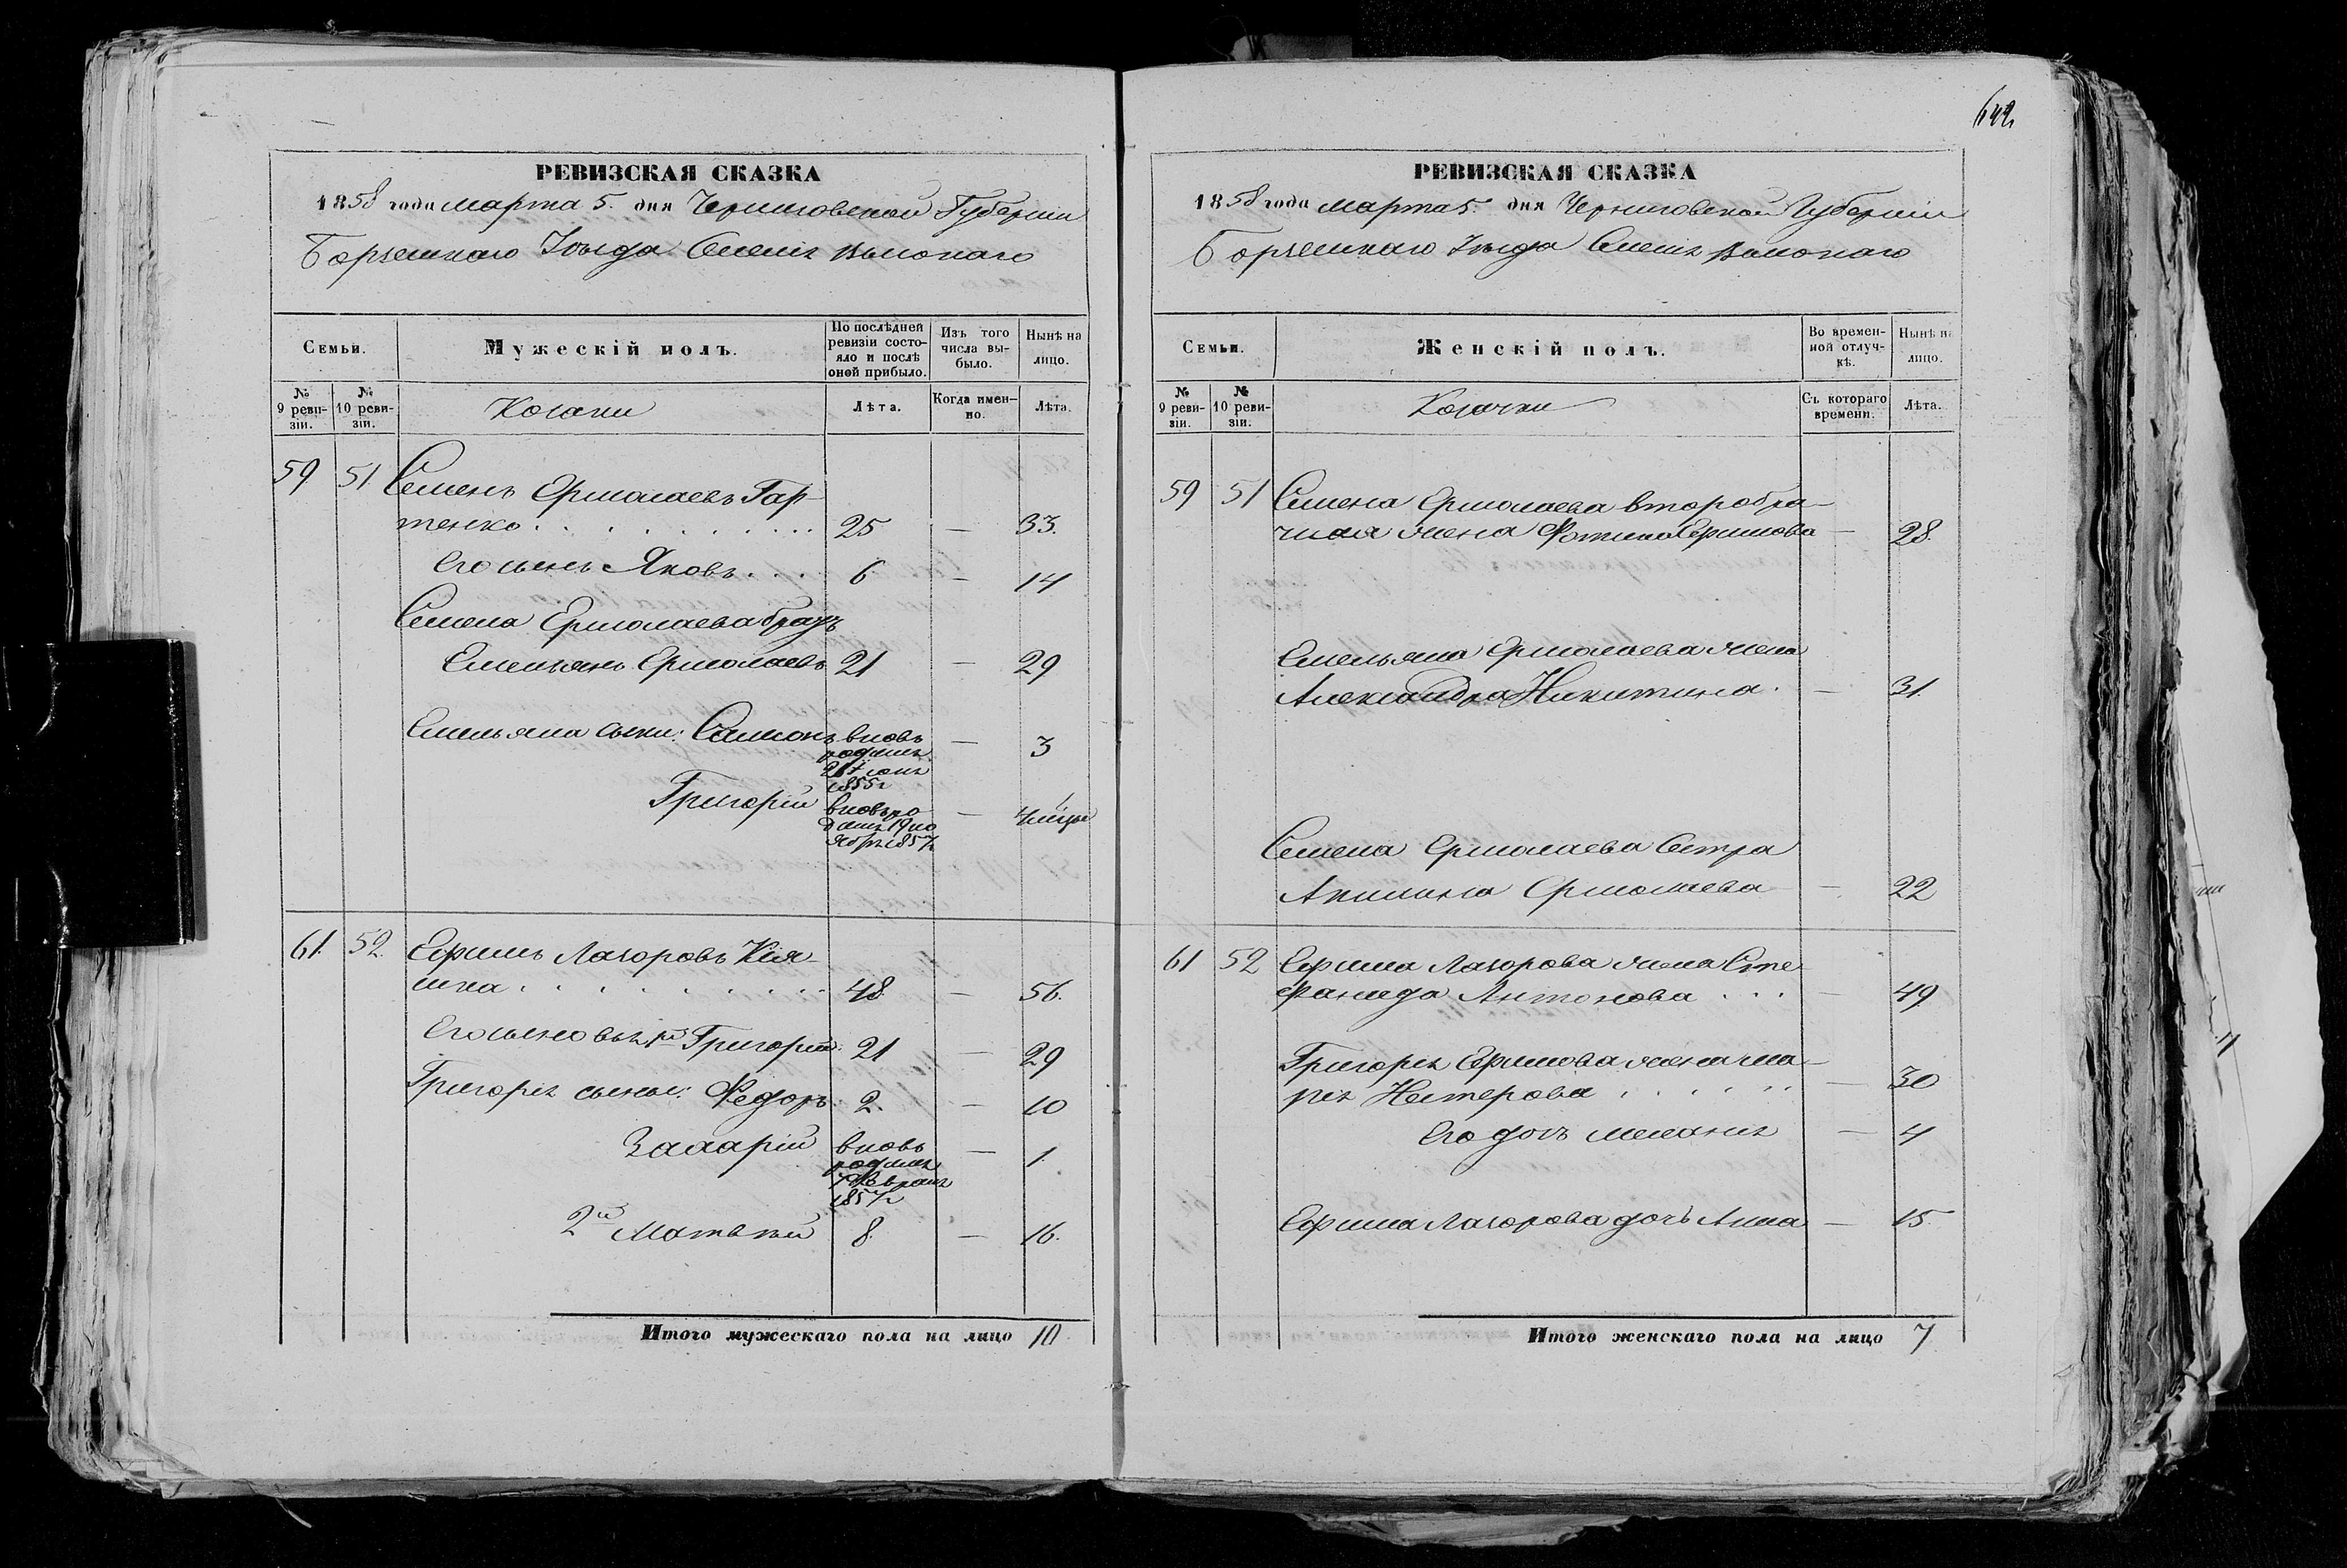 РЕВИЗСКАЯ СКАЗКА
1858 года марта 5. дня Черниговской Губерніи
Борзенскаго Уѣзда
Семьи.
Мужескій полъ.
По послѣдней ревизіи состояло и послѣ оной прибыло.
Изъ того числа выбыло.
Нынѣ на лицо.
№ 9 ревизіи.
№ 10 ревизіи.
Козаки
Лѣта.
Когда именно.
Лѣта.
59 51 Семенъ Ермолаевъ Гар-
тенко . . . . . . . . . . 25 — 33.
Его сынъ Яковъ . . . 6 — 14
Семена Ермолаева братъ
Емельянъ Ермолаевъ 21 — 29
Емельяна сыны: Самсонъ вновь — 3
1855г
Григорій вновь ро — 4 мѣсяц
дился 19 но
ября 1857г
61. 52. Ефимъ Лазоровъ Кія-
шка . . . . . . . . . 48. — 56.
Его сыновья 1й Григорій. 21 — 29
Григорія сыны: Федоръ. 2. — 10
Захарій вновь — 1.
родился
7 Февраля
1857г
2й Матвѣй 8. — 16.
Итого мужескаго пола на лицо 10.
642
РЕВИЗСКАЯ СКАЗКА
1858 года марта 5. дня Черниговской Губерніи
Борзенскаго Уѣзда
Семьи.
Женскій полъ.
Во временной отлучкѣ.
Нынѣ на лицо.
№ 9 ревизіи.
№ 10 ревизіи.
Козачки
Съ котораго времени.
Лѣта.
59 51 Семена Ермолаева второбра-
чная жена Фотина Ефимова — 28.
Емельяна Ермолаева жена
Александра Никитина. — 31.
Семена Ермолаева Сестра
Акилина Ермолаева — 22
61 52 Ефима Лазорова жена Сте-
фанида Антонова . . . — 49
Григорія Ефимова жена Ма-
рія Нестерова . . . . . — 30
Его дочь Меланія — 4
Ефима Лазорова дочь Анна — 15.
Итого женскаго пола на лицо 7